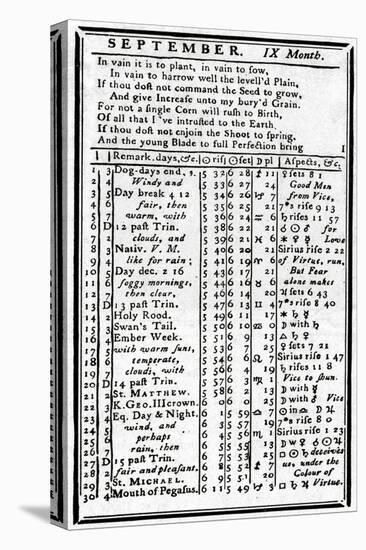 SEPTEMBER. IX Month.
In vain it is to plant, in vain to sow,
In vain to harrow well the levell'd Plain,
If thou dost not command the Seed to grow,
And give Increase unto my bury'd Grain.
For not a single Corn will rush to Birth,
Of all that I 've intrusted to the Earth,
If thou dost not enjoin the Shoot to spring,
And the young Blade to full Perfection bring
I
Remark. days, &c. ☉ ris ☉ set ☽ pl Aspects, &c.
1 3 Dog-days end, s. 5 32 6 28 ♐ 11 ♀ sets 8 1
2 4 Windy and 5 33 6 27 24 Good Men
3 5 Day break 4 12 5 34 6 26 ♑ 7 from Vice,
4 6 fair, then 5 35 6 25 21 7*s rise 9 13
5 7 warm, with 5 36 6 24 ♄ rises 11 57
6 D 12 past Trin. 5 37 6 23 21 ☌ ☉ ♂ for
7 2 clouds, and 5 39 6 21 ♓ 6 ✶ ♀ ☿ Love
8 3 Nativ. V. M. 5 40 6 20 21 Sirius rise 2 22
9 4 like for rain; 5 41 6 19 ♈ 6 of Virtue, run,
10 5 Day dec. 2 16 5 42 6 18 21 But Fear
11 6 foggy mornings, 5 44 6 16 ♉ 6 alone makes
12 7 then clear, 5 46 6 14 20 ♃ sets 6 43
13 D 13 past Trin. 5 47 6 13 ♊ 4 7*s rise 8 40
14 2 Holy Rood. 5 48 6 12 17 ✶ ♄ ☿
15 3 Swan's Tail. 5 50 6 10 ♋ 0 ☽ with ♄
16 4 Ember Week. 5 51 6 9 13
17 5 with warm suns, 5 53 6 7 25 ♀ sets 7 21
18 6 temperate, 5 54 6 6 ♌ 7 Sirius rise 1 47
19 7 clouds, with 5 55 6 5 19 ♄ rises 11 8
20 D 14 past Trin. 5 57 6 3 ♍ 1 Vice to shun.
21 2 St. MATTHEW. 5 58 6 2 13 ☽ with ☿
22 3 K. Geo. III crown. 6 0 6 0 ☽ with ♂ Vice
23 4 Eq. Day & Night. 6 1 5 59 ♎ 7 ☉ in ♎ ☽ ♃
24 5 wind, and 7*s rise 8 0
25 6 perhaps ♏ 1 Sirius rise 1 23
26 7 rain, then ☽ w ♀ ☌ ☉ ♃
27 D 15 past Trin. □ ☉ ♄ deceives
28 2 fair and pleasant. us, under the
29 3 St. MICHAEL. Colour of
30 4 Mouth of Pegasus. 6 11 5 49 ♑ 3 □ ♄ ♃ Virtue.